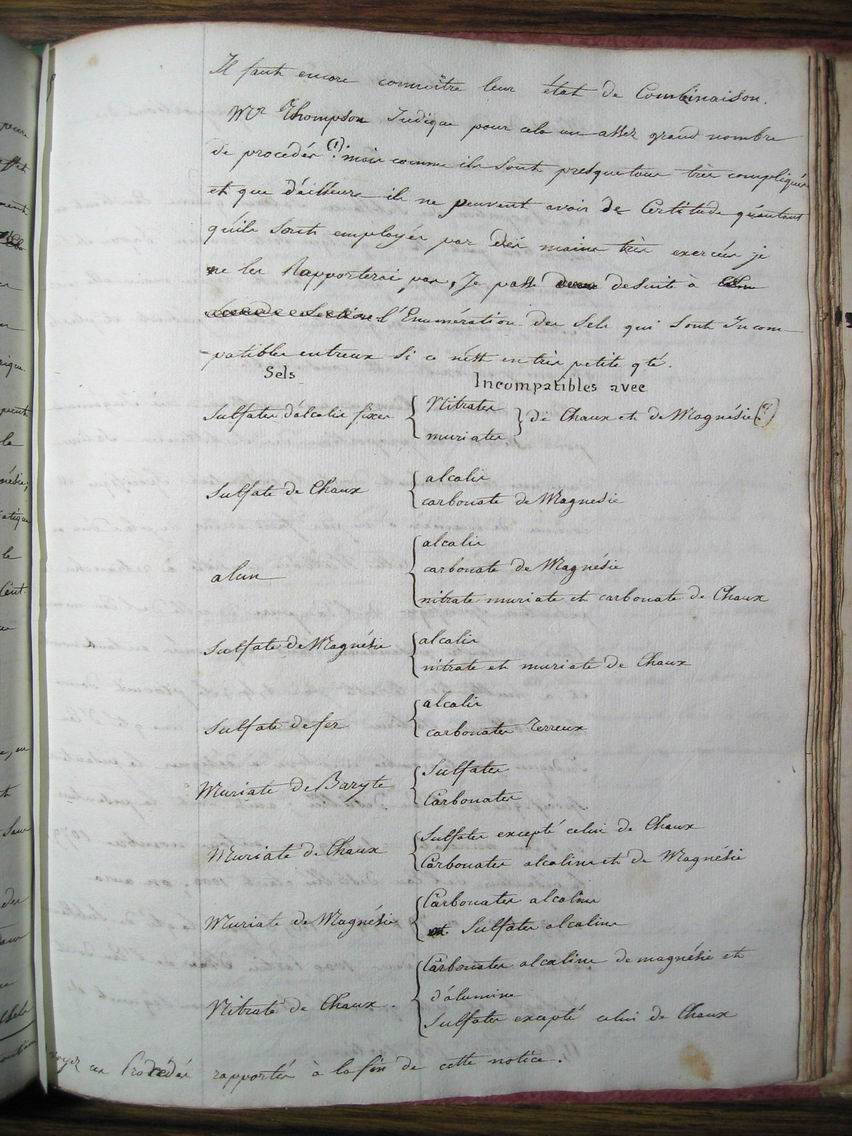 Il faut encore connoître leur état de Combinaison.
Mr Thompson Indique pour cela un assez grand nombre
de procédés (1) mais comme ils sont presque tous très compliqués
et que d'ailleurs ils ne peuvent avoir de Certitude qu'autant
qu'ils sont employés par des mains très exercées je
ne les Rapporterai pas, Je passe desuite à
l'Enumération des Sels qui sont Incom-
patibles entreux Si ce n'est en très petite qté.
Sels Incompatibles avec
Sulfates d'alcalis fixes { Nitrates
muriates } de Chaux et de Magnésie (?)
Sulfate de Chaux { alcalis
carbonate de Magnésie
alun { alcalis
carbonate de Magnésie
nitrate muriate et carbonate de Chaux
Sulfate de Magnésie { alcalis
nitrate et muriate de Chaux
Sulfate de fer { alcalis
carbonates Terreux
Muriate de Baryte { Sulfates
Carbonates
Muriate de Chaux { Sulfates excepté celui de Chaux
Carbonates alcalins et de Magnésie
Muriate de Magnésie { Carbonates alcalins
Sulfates alcalins
Nitrate de Chaux . { Carbonates alcalins de magnésie et
d'alumine
Sulfates excepté celui de Chaux
ces Procédés rapportés à la fin de cette notice.